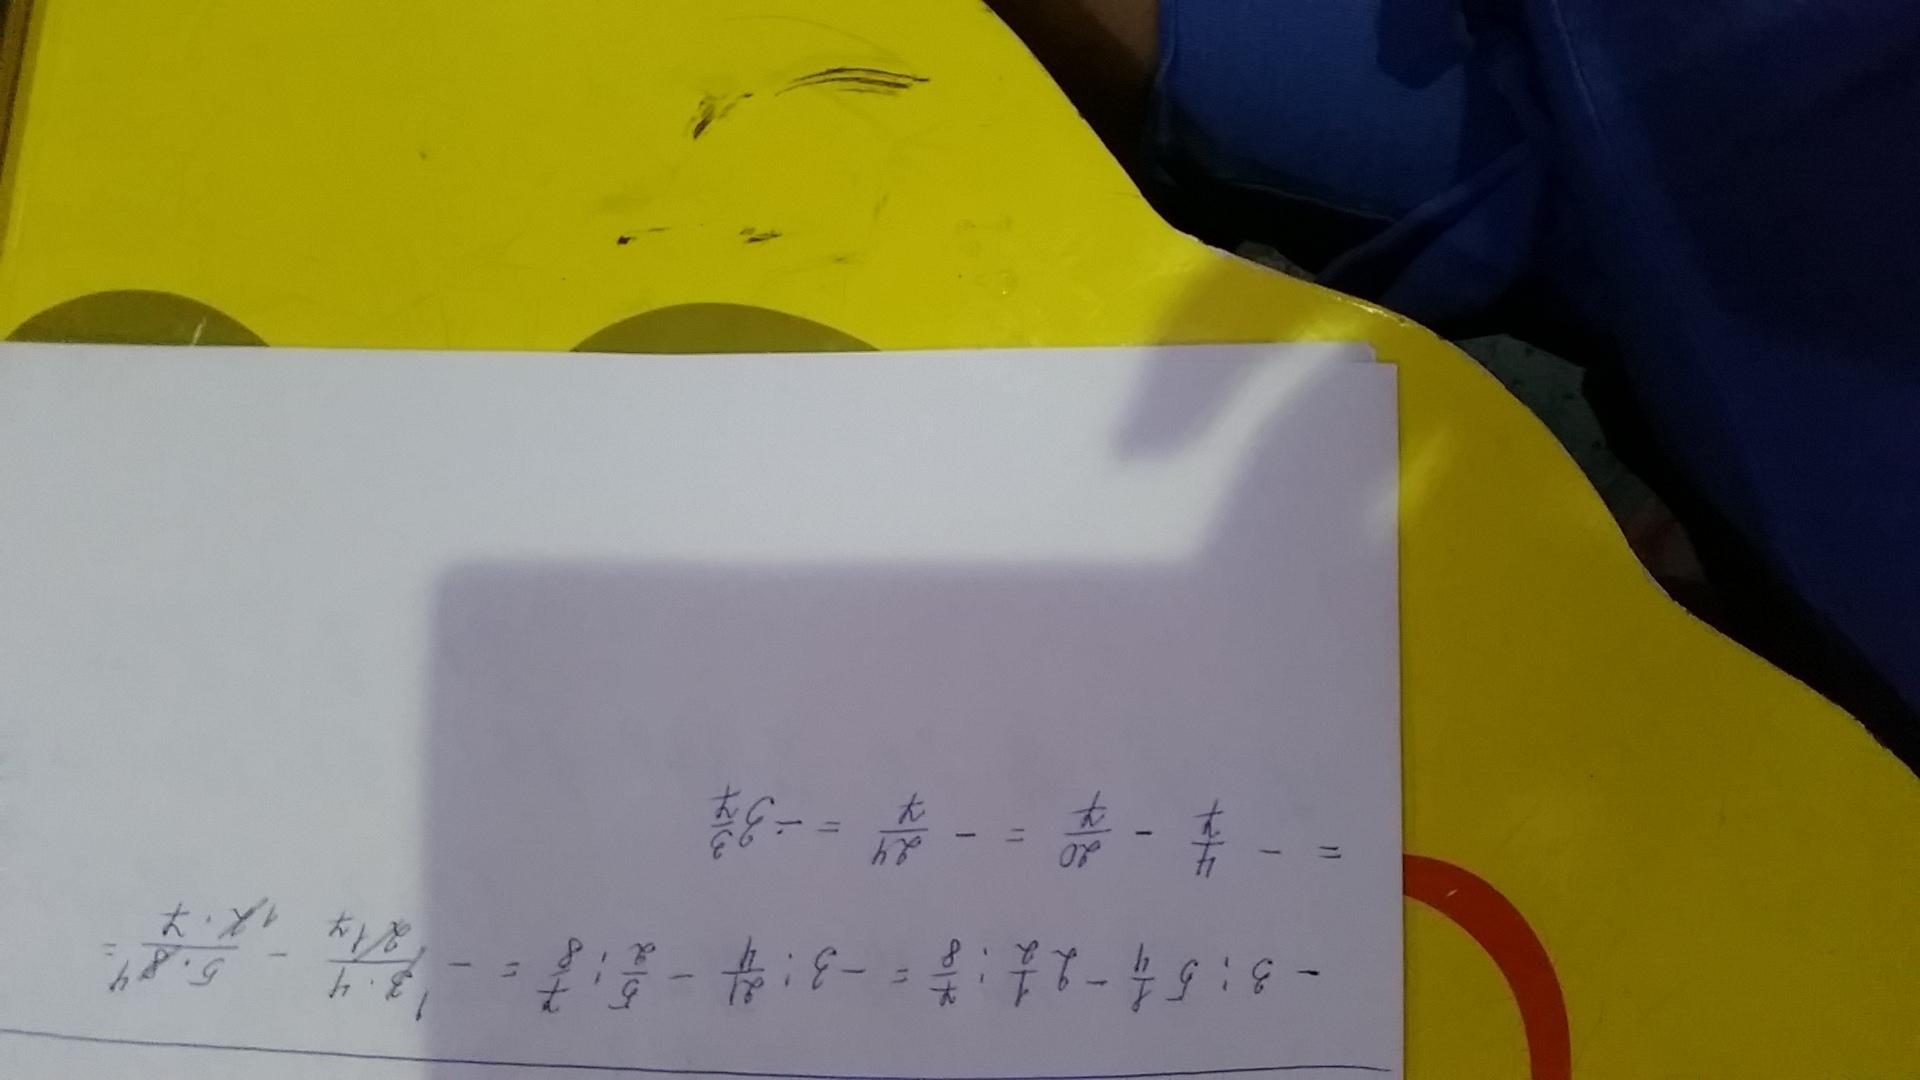 - 3 : 5 1/4 - 2 1/2 : 7/8 = -3 : 21/4 - 5/2 : 7/8 = - 1 3·4/21 7 - 5·8 4/1 2·7 =
= - 4/7 - 20/7 = - 24/7 = -3 3/7